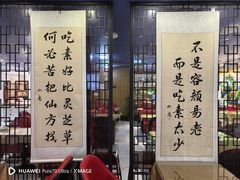 不是容颜易老
而是吃素太少
吃素好比灵芝草
何必苦把仙方找
HUAWEI Pura70 Ultra | XMAGE